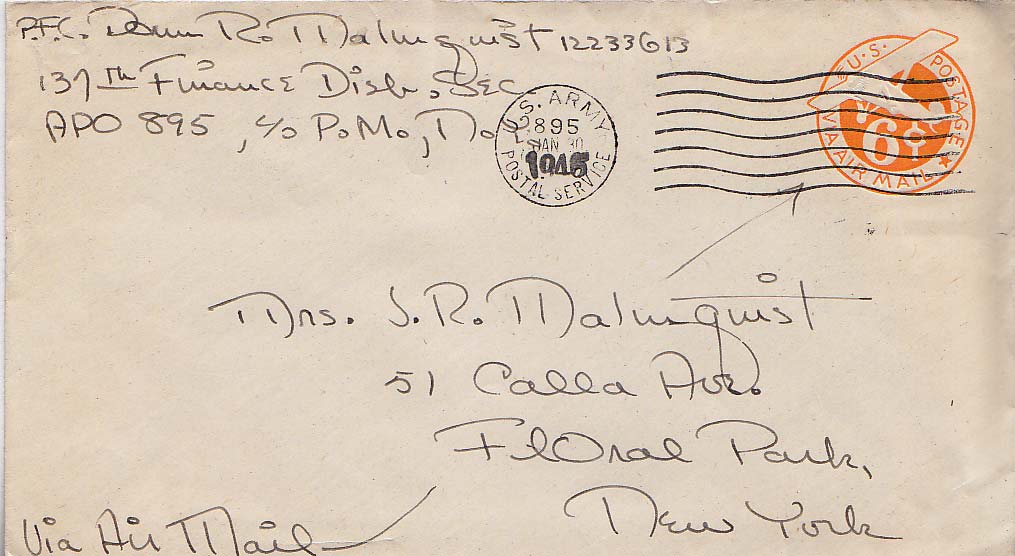 P.F.C. Donn R. Malmquist 12233613
137th Finance Disb. Sec.
APO 895, c/o P.M., N.Y.
U.S. ARMY
895
JAN 30
1945
POSTAL SERVICE
U.S. POSTAGE
6¢
VIA AIR MAIL
Mrs. J. R. Malmquist
51 Calla Ave.
Floral Park,
New York
Via Air Mail